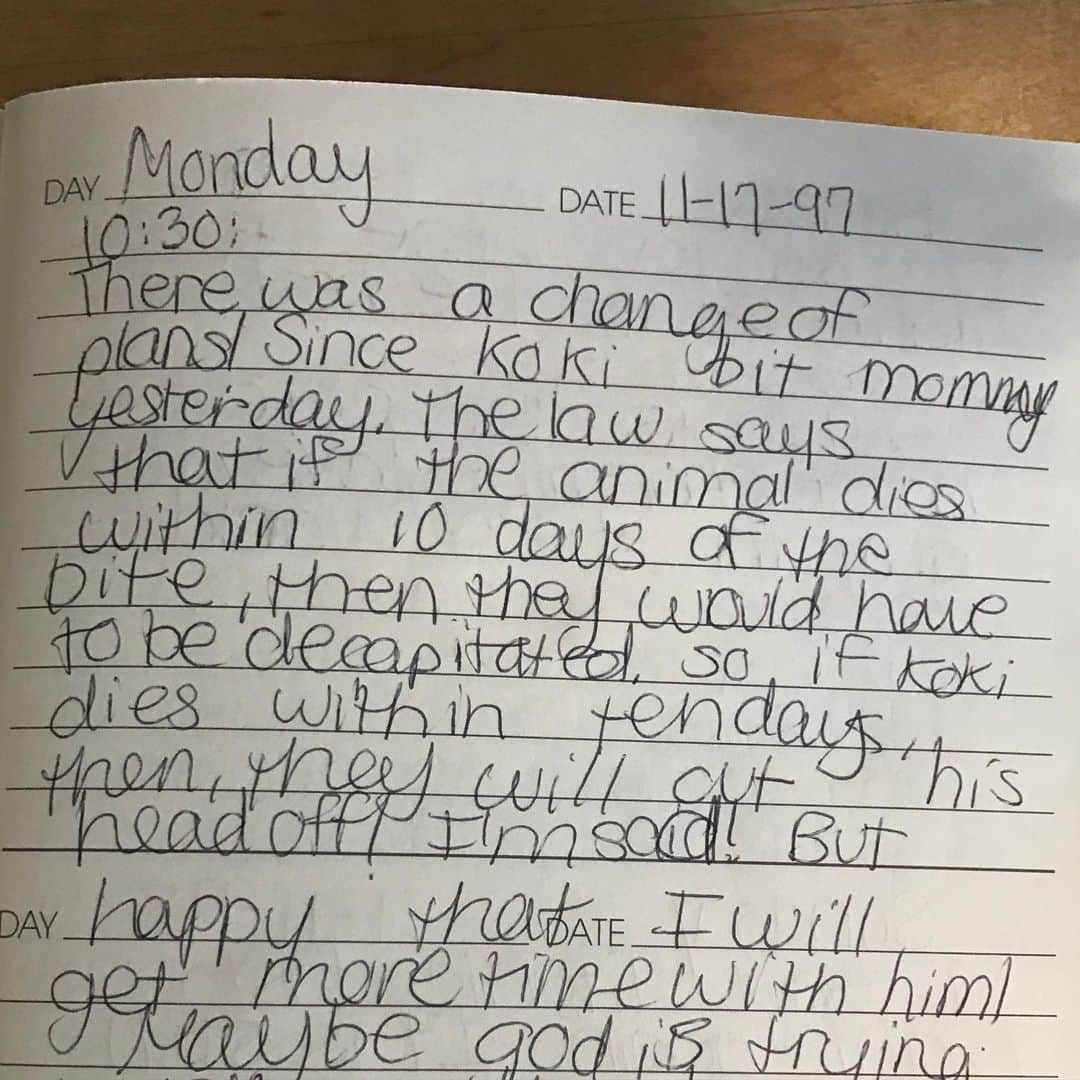 DAY Monday DATE 11-17-97
10:30:
There was a change of
plans! Since Koki bit mommy
yesterday. The law says
that if the animal dies
within 10 days of the
bite, then they would have
to be decapitated. so if Koki
dies within ten days,
then, they will cut his
head off! I'm sad! But
DAY happy that DATE I will
get more time with him!
Maybe god is trying